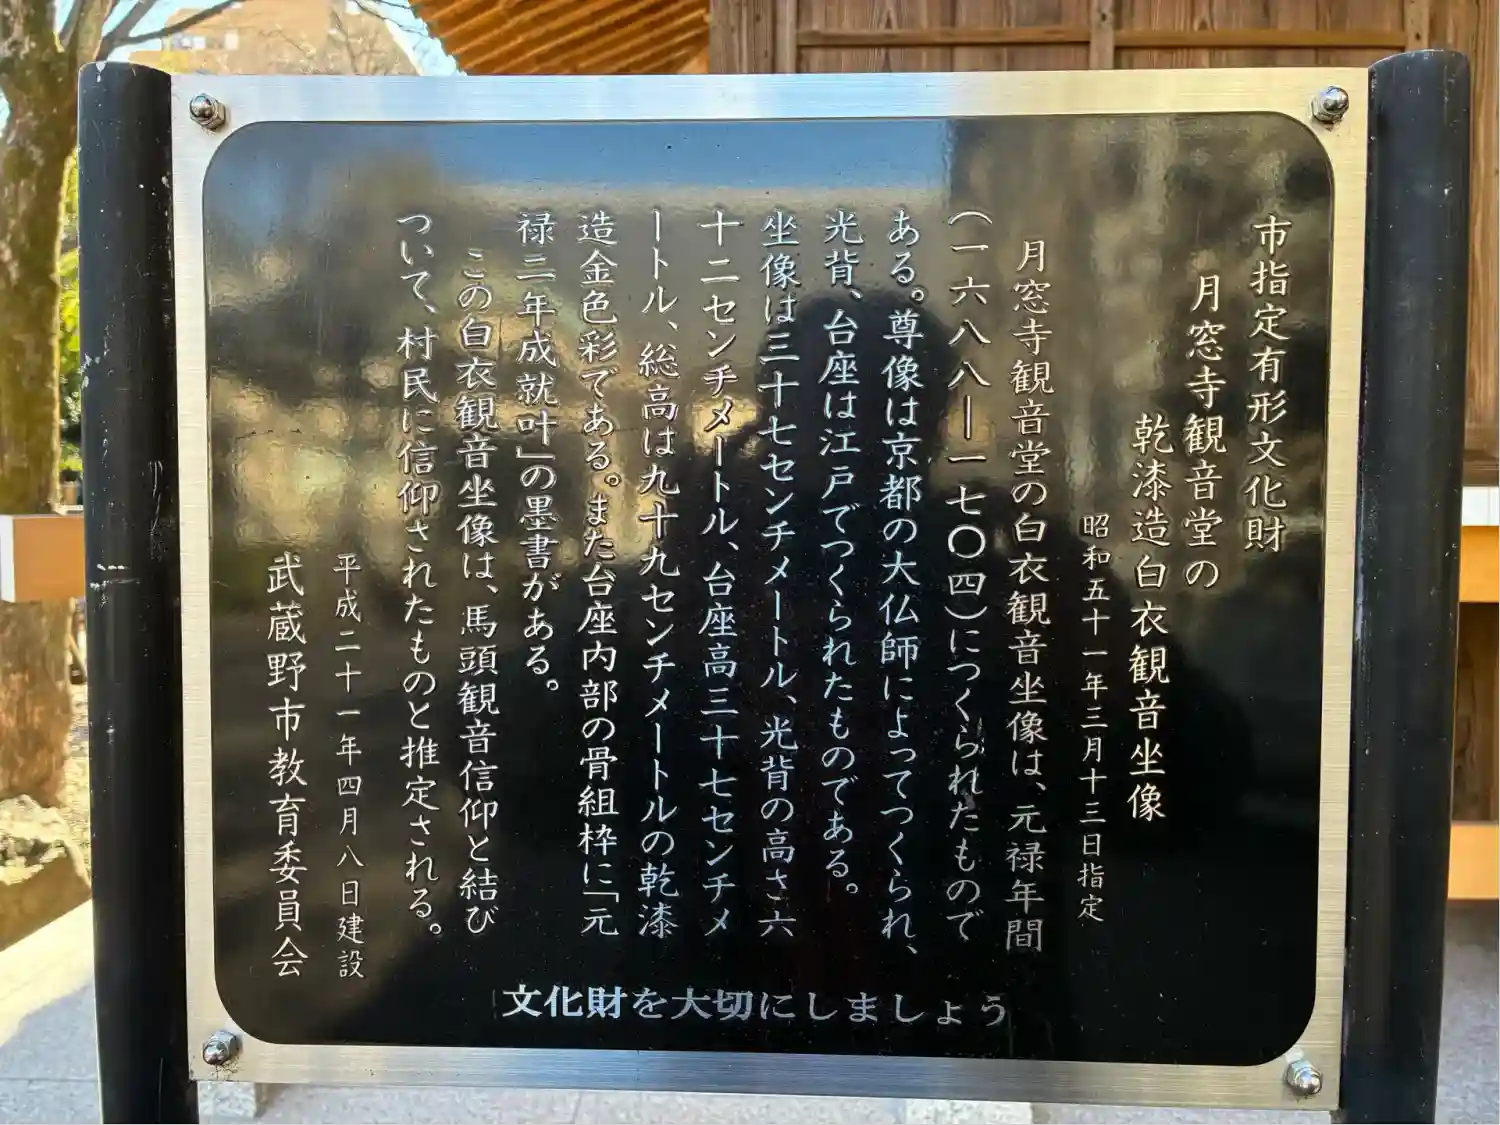 市指定有形文化財
月窓寺観音堂の
乾漆造白衣観音坐像
昭和五十一年三月十三日指定
月窓寺観音堂の白衣観音坐像は、元禄年間
(一六八八―一七〇四)につくられたもので
ある。尊像は京都の大仏師によってつくられ、
光背、台座は江戸でつくられたものである。
坐像は三十七センチメートル、光背の高さ六
十二センチメートル、台座高三十七センチメ
ートル、総高は九十九センチメートルの乾漆
造金色彩である。また台座内部の骨組枠に「元
禄三年成就叶」の墨書がある。
この白衣観音坐像は、馬頭観音信仰と結び
ついて、村民に信仰されたものと推定される。
平成二十一年四月八日建設
武蔵野市教育委員会
文化財を大切にしましょう